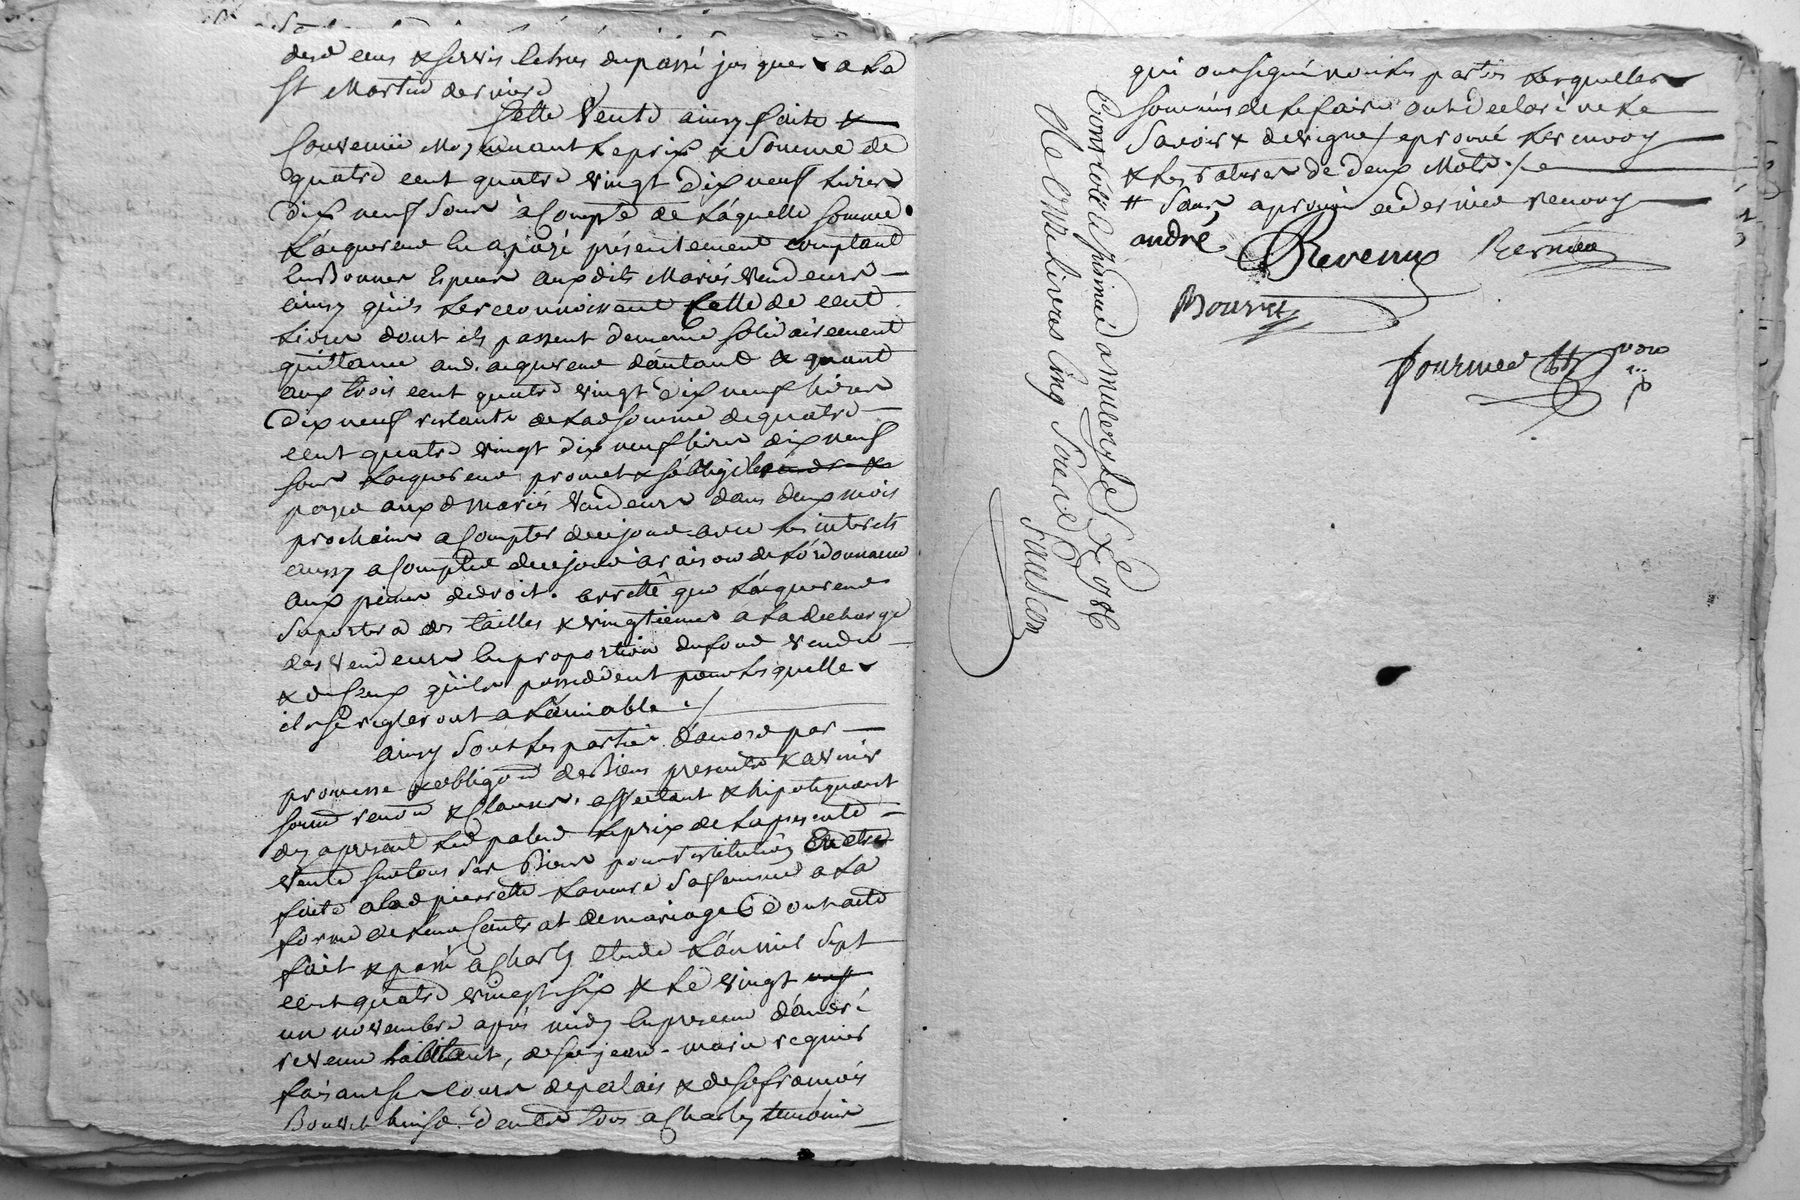 desd cens & servis échus du passé jusques a la
St Martin derniere
Cette Vente ainsy faite &
Convenüe Moyennant le prix & Somme de
quatre cent quatre vingt dix neuf Livres
dix neuf Sous à Compte de Laquelle Somme
L'acquereur en a payé présentement comptant
en Bonnes Especes auxdits Mariés Vendeurs
ainsy qu'ils Le reconnoissent Celle de cent
Livres dont ils passent de meme solidairement
quittance aud. acquereur d'autant & quant
aux trois cent quatre vingt dix neuf livres
dix neuf restante de Lad Somme de quatre
cent quatre vingt dix neuf livres dix neuf
sous L'acquereur promet & s'oblige
payer aux d mariés Vendeurs dans deux mois
prochains a Compter de ce jour avec les interets
aussy a Compter de ce jour à raison de L'ordonnance
aux peines de droit. arretté que L'acquereur
Suportera des tailles & vingtiemes a La decharge
des Vendeurs en proportion du fond vendu
& de Ceux qu'ils possedent pour Lesquelles
ils se regleront a L'amiable ./
ainsy Sont Les parties d'acord par
promesse & obligõn des Biens presents & avenir
soum renõn & Clauses, affectant & hipotequant
des apresent Led Le prix de La presente
Vente sur tous Ses Biens pour restitution
faite a lad pierrette sa femme a La
forme de Leur Contrat de mariage dont acte
fait & passé a Charly etude L'an mil Sept
cent quatre vingt six & Le vingt neuf
un novembre après midy en presence d'andré
revenu habitant, de Sr jean-marie regnier
faisant ses cours de palais & de Sr francois
Bouvet tous a Charly temoins
qui ont signé non Les parties Lesquelles
Sommées de Le faire ont declaré ne Le
Savoir & de signer / aprouvé Le renvoy
& Les ratures de deux Mots ./.
# Sans aprouver ce dernier renvoy
andré Revenu Regnier
Bouvet
Controllé a St Genis
Re onze Livres Cinq Sous